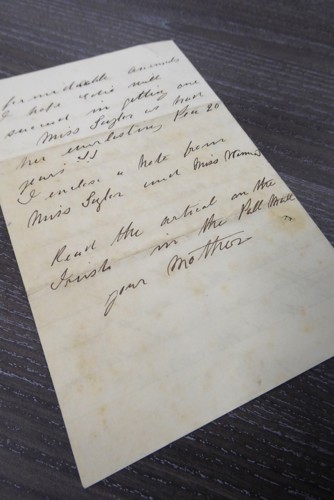 formidable animals
I hope Edie will
succeed in getting one
Miss Taylor is
her everlasting Pen 20
years !!
I enclose a note from
Miss Taylor and Miss
Read the artical on the
Irish in the Pall Mall
your Mother